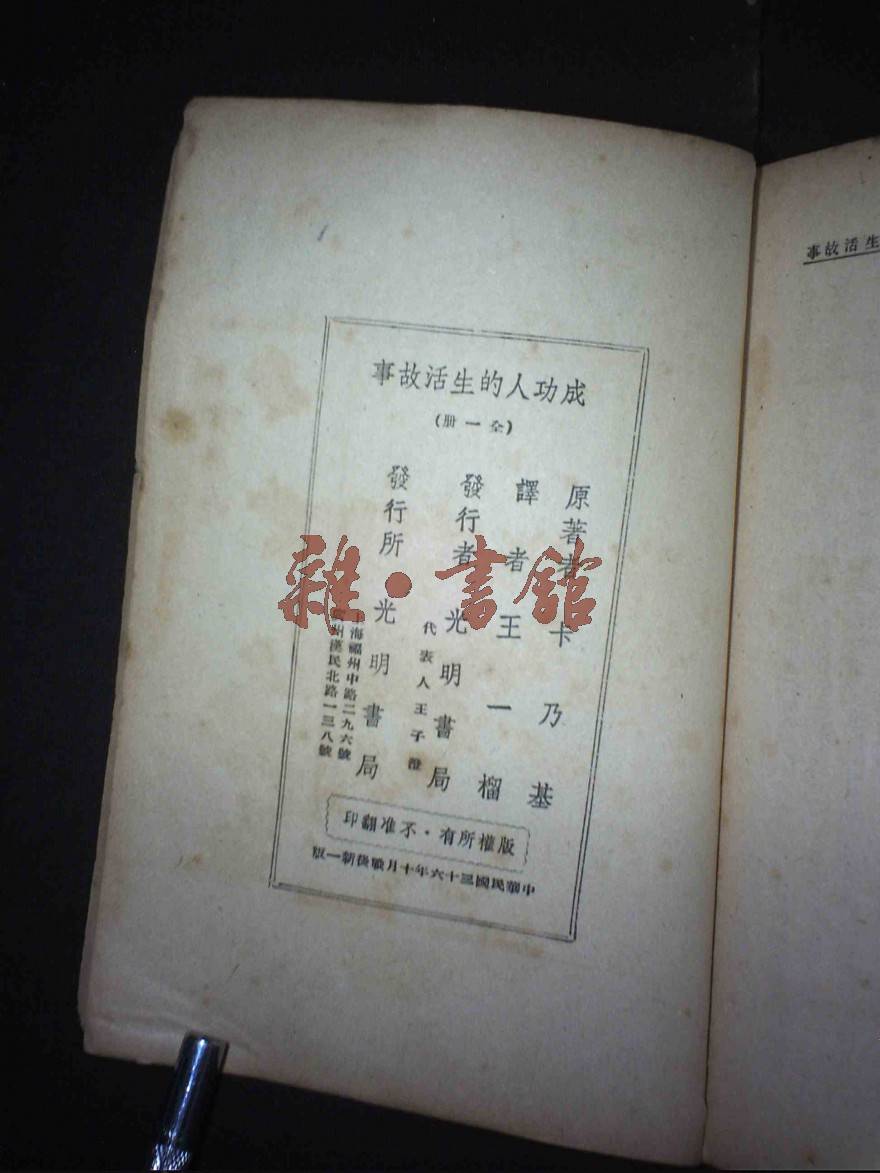 成功人的生活故事
(全一冊)
原著者 卡乃基
譯者 王一榴
發行者 光明書局
代表人王子澄
發行所 光明書局
海福州中路二九六號
州漢民北路一三八號
版權所有·不准翻印
中華民國三十六年十月戰後新一版
生活故事
雜·書館